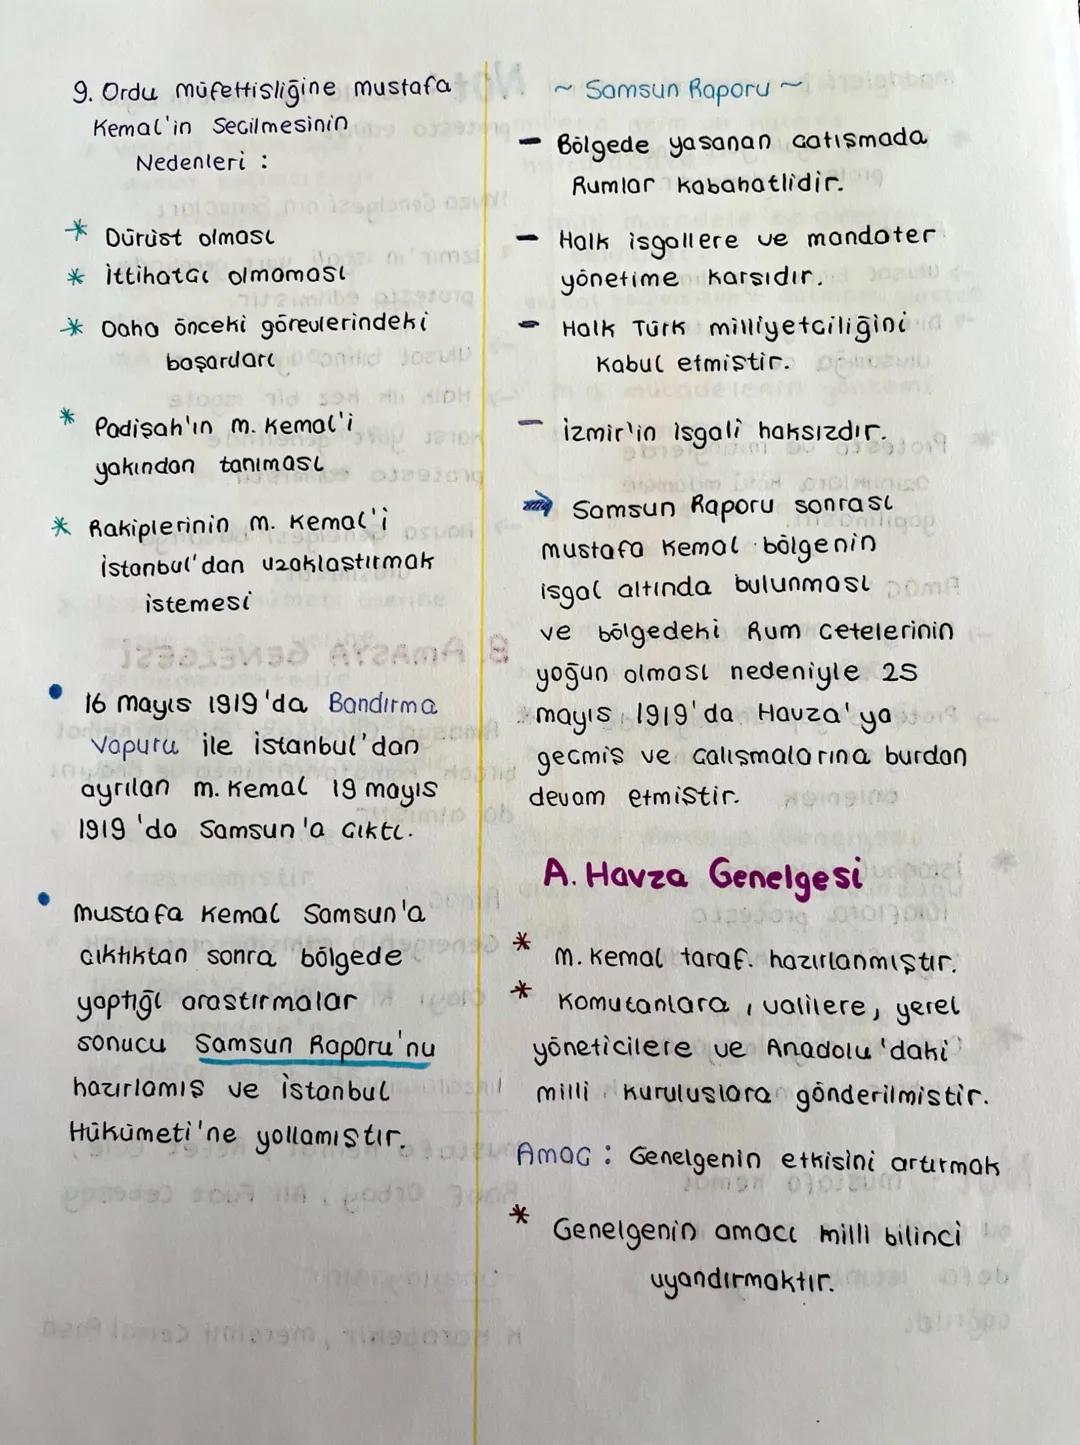 9. Ordu müfettisliğine mustafa
Kemal'in Secilmesinin
Nedenleri :
* Dürüst olması
* İttihatcı olmaması
* Daha önceki görevlerindeki
başarıları
* Padişah'ın m. Kemal'i
yakından tanıması
* Rakiplerinin m. Kemal'i
istanbul'dan uzaklastırmak
istemesi
• 16 mayıs 1919'da Bandırma
Vapuru ile istanbul'dan
ayrılan m. Kemal 19 mayıs
1919'da Samsun'a cıktı.
• mustafa Kemal Samsun'a
cıktıktan sonra bölgede
yaptığı arastırmalar
sonucu Samsun Raporu'nu
hazırlamıs ve istanbul
Hükümeti'ne yollamıştır.
~ Samsun Raporu ~
- Bölgede yasanan catışmada
Rumlar kabahatlidir.
- Halk isgallere ve mandater
yönetime karsıdır.
- Halk Türk milliyetciliğini
kabul etmistir.
- izmir'in isgali haksızdır.
⇒ Samsun Raporu sonrası
mustafa Kemal bölgenin
isgal altında bulunması
ve bölgedeki Rum cetelerinin
yoğun olması nedeniyle 25
mayıs 1919'da Havza'ya
gecmiş ve calısmalarına burdan
devam etmistir.
A. Havza Genelgesi
* m. Kemal taraf. hazırlanmıştır.
* Komutanlara, valilere, yerel
yöneticilere ve Anadolu'daki
milli kuruluslara gönderilmistir.
Amac : Genelgenin etkisini artırmak
* Genelgenin amacı milli bilinci
uyandırmaktır.